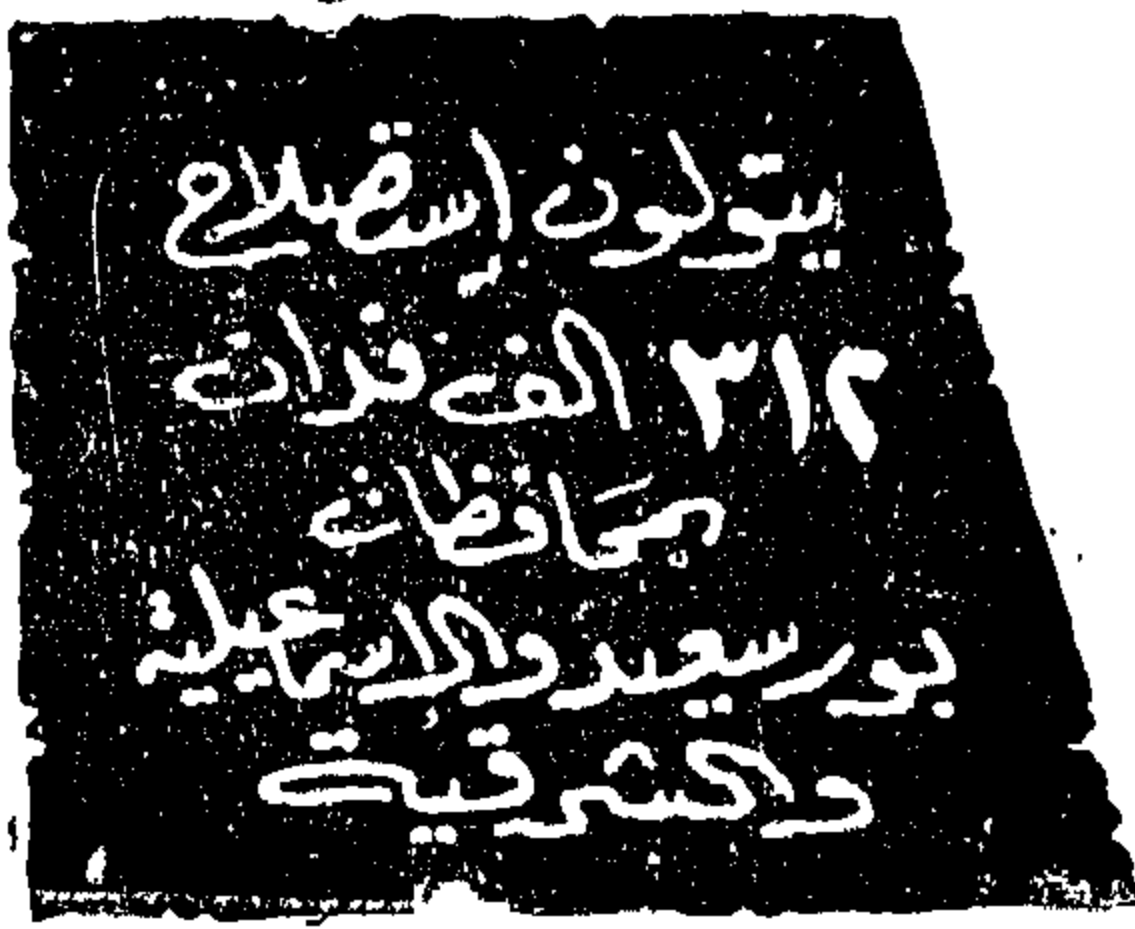 يتولون إستصلاح
٣١٢ الف فدان
بمحافظات
بورسعيد والإسماعيلية
والشرقية